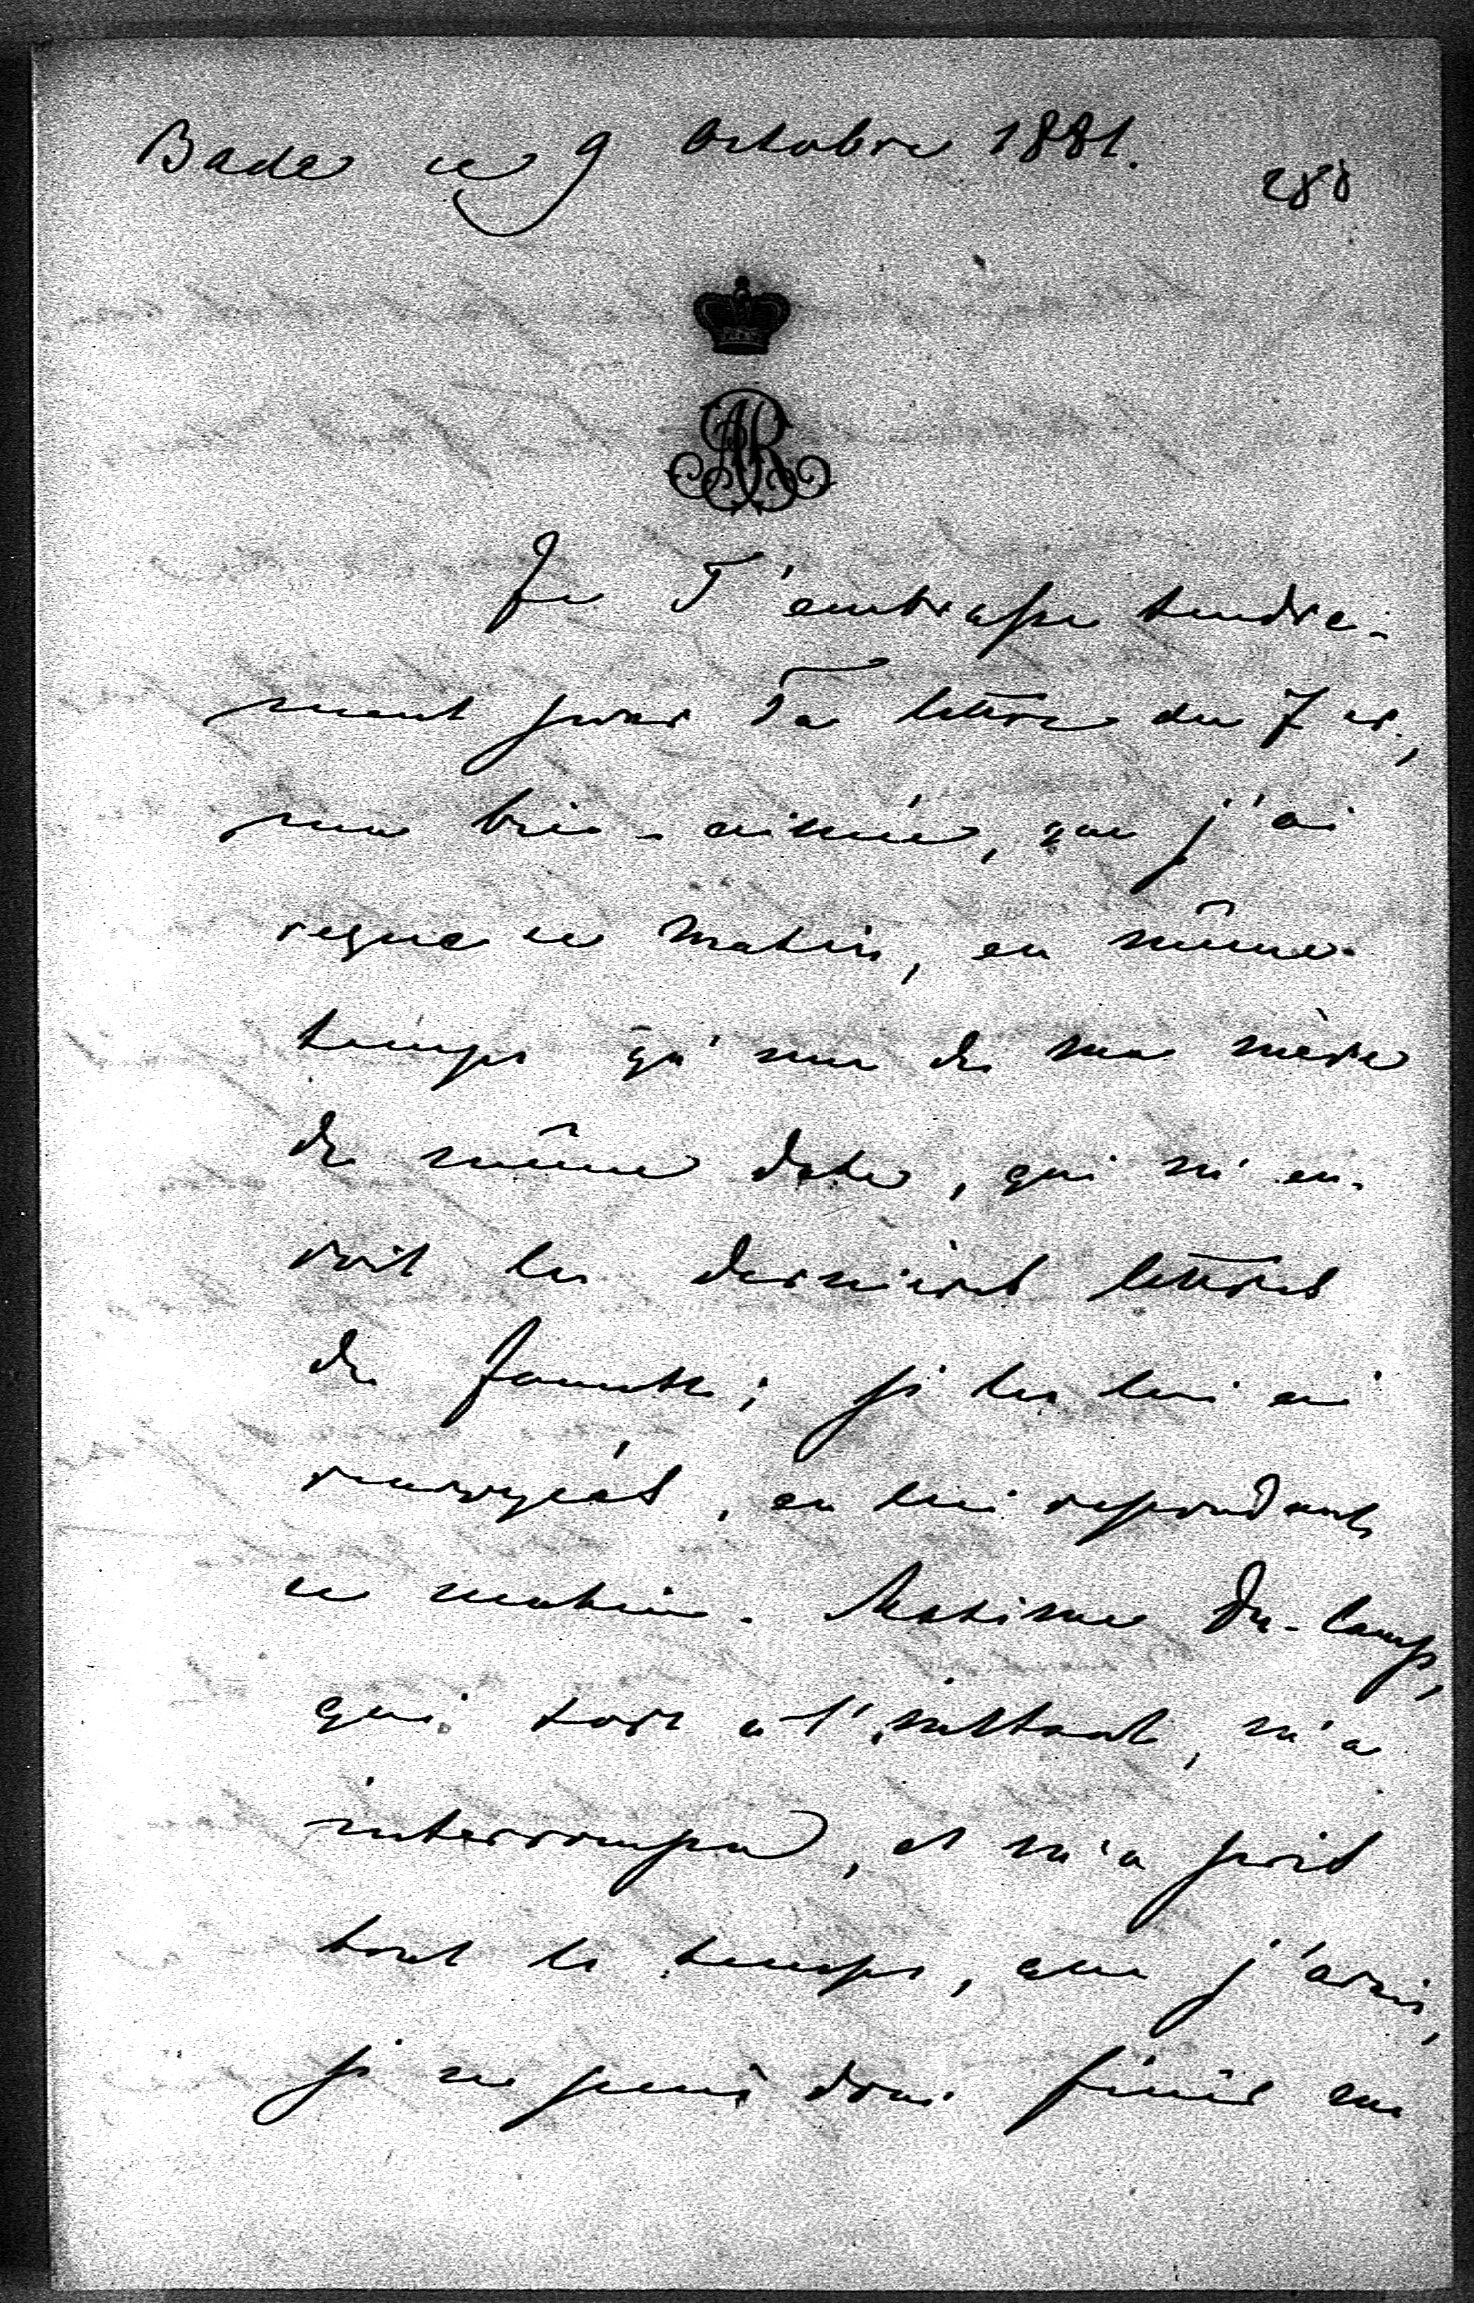 Bade ce 9 Octobre 1881.
288
AR
Je T'embrasse tendre-
ment pour Ta lettre du 7 cr.,
ma bien-aimée, que j'ai
reçue ce matin, en même
temps qu'une de ma mère
de même date, qui m'en-
voit les dernières lettres
de Fanette; je les lui ai
renvoyées, en lui repondant
ce matin. Maxime Du-Camp,
qui sort à l'instant, m'a
interrompu, et m'a pris
tout le temps, que j'avais,
je ne puis donc finir ma